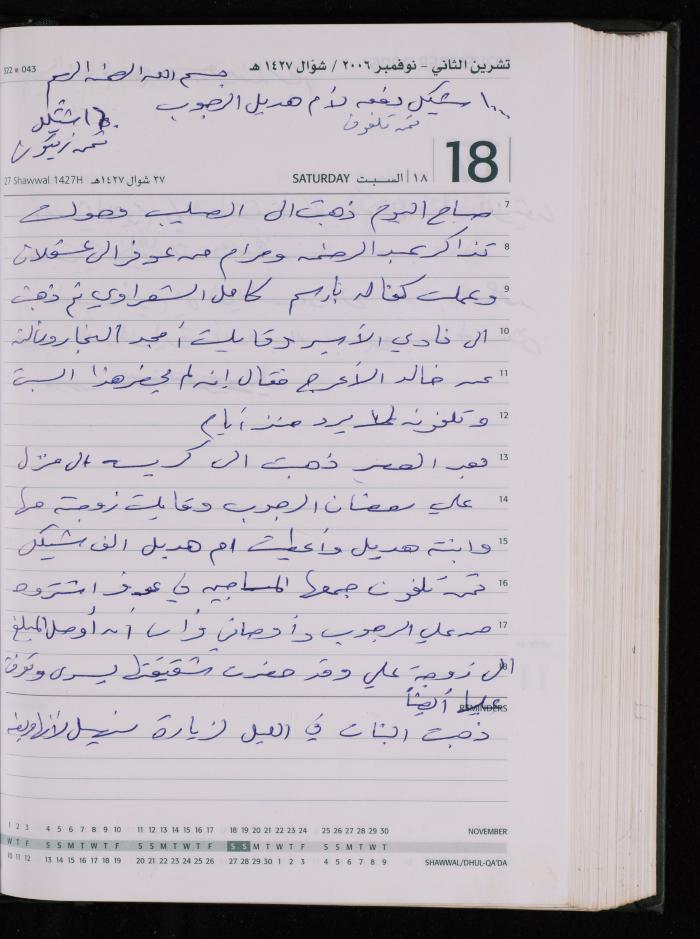 تشرين الثاني - نوفمبر ٢٠٠٦ / شوّال ١٤٢٧ هـ
322 043
بسم الله الرحمن الرحيم
١٠٠٠ شيكل دفعه لأم هديل الرجوب
ثمن تلفون
شيكل
ثمن زيتون
18
SATURDAY السبت | ١٨
٢٧ شوال ١٤٢٧هـ 27 Shawwal 1427H
7 صباح اليوم ذهبت الى الصليب وصولت
8 تذاكر عبد الرحمن ومرام من عوفر الى عسقلان
9 وعملت كفاله باسم كامل الشعراوي ثم ذهبت
10 الى نادي الأسير وقابلت أمجد النجار وسألته
11 عن خالد الأعرج فقال إنه لم يحضر هذا السبت
12 وتلفونه لا يرد منذ أيام
13 وبعد العصر ذهبت الى كريسه الى منزل
14 علي رمضان الرجوب وقابلت زوجته مها
15 وابنته هديل وأعطيت ام هديل الف شيكل
16 ثمن تلفون جمعها المساجين في عوفر اشتروه
17 من علي الرجوب وأوصاني أن أوصل المبلغ
18 الى زوجة علي وقد حضرت شقيقتها يسرى وتعرفت
عليها أيضاً
REMINDERS
ذهبت البنات في الليل لزيارة
1 2 3 4 5 6 7 8 9 10 11 12 13 14 15 16 17 18 19 20 21 22 23 24 25 26 27 28 29 30 NOVEMBER
W T F S S M T W T F S S M T W T F S S M T W T F S S M T W T
10 11 12 13 14 15 16 17 18 19 20 21 22 23 24 25 26 27 28 29 30 1 2 3 4 5 6 7 8 9 SHAWWAL/DHUL-QA'DA